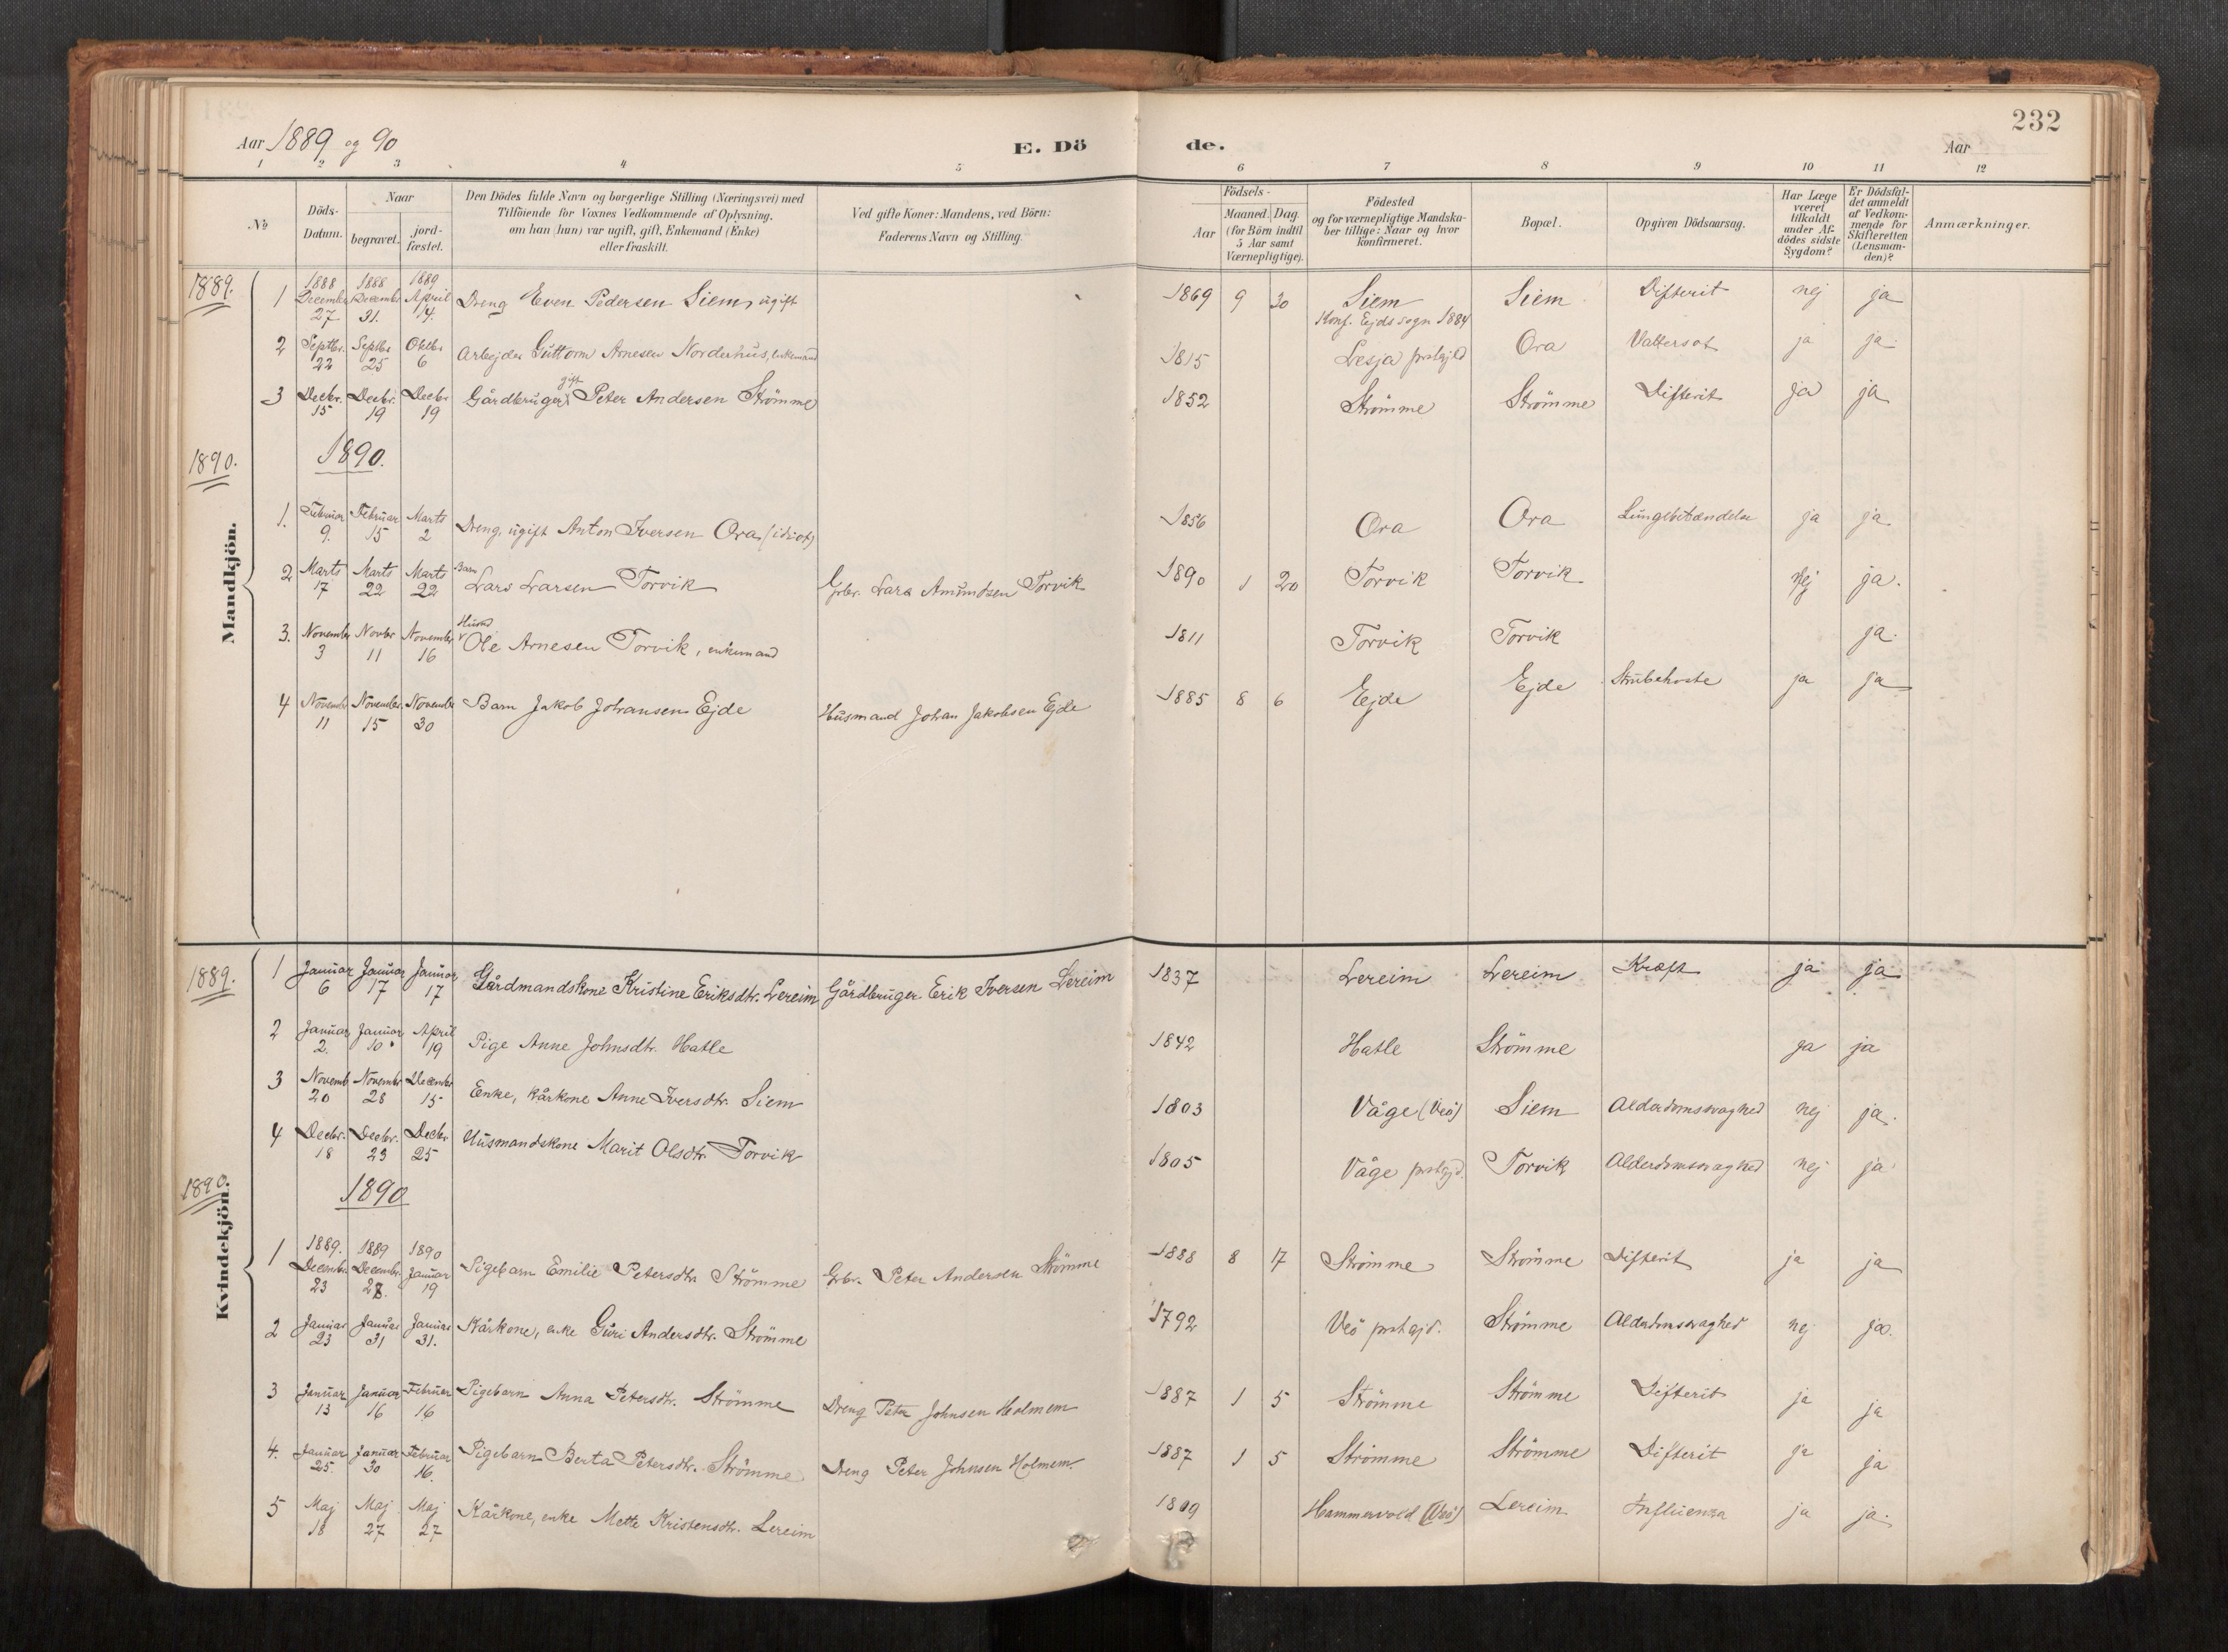 232
Aar 1889 og 90 E. Dö de. Aar
1 2 3 4 5 6 7 8 9 10 11 12
No Döds-Datum. Naar begravet. jord-fæstet. Den Dödes fulde Navn og borgerlige Stilling (Næringsvei) med Tilföiende for Voxnes Vedkommende af Oplysning, om han (hun) var ugift, gift, Enkemand (Enke) eller fraskilt. Ved gifte Koner: Mandens, ved Börn: Faderens Navn og Stilling. Födsels- Aar Maaned. Dag. (for Börn indtil 5 Aar samt Værnepligtige). Födested og for værnepligtige Mandskaber tillige: Naar og hvor konfirmeret. Bopæl. Opgiven Dödsaarsag. Har Læge været tilkaldt under Afdödes sidste Sygdom? Er Dödsfaldet anmeldt af Vedkommende for Skifteretten (Lensmanden)? Anmærkninger.
Mandkjön.
1889. 1 1888 December 27 1888 December 31. 1889 April 14. Dreng Even Pedersen Siem, ugift 1869 9 30 Siem Konf. Ejds sogn 1884 Siem Difterit nej ja
2 Septbr. 22 Septbr 25 Oktbr 6 Arbejder Guttorm Arnesen Norderhus, enkemand 1815 Lesja prstgjld Ora Vattersot ja ja
3 Decbr. 15 Decbr. 19 Decbr 19 Gårdbruger gift Peter Andersen Strömme 1852 Strömme Strömme Difterit ja ja
1890. 1890.
1. Februar 9. Februar 15 Marts 2 Dreng, ugift Anton Iversen Ora (idiot) 1856 Ora Ora Lungebetændelse ja ja
2 Marts 17 Marts 22 Marts 22 Barn Lars Larsen Torvik Grbr. Lars Amundsen Torvik 1890 1 20 Torvik Torvik nej ja.
3. November 3 Novbr 11 November 16 Husmd Ole Arnesen Torvik, enkemand 1811 Torvik Torvik ja.
4 Novembr 11 November 15 November 30 Barn Jakob Johansen Ejde Husmand Johan Jakobsen Ejde 1885 8 6 Ejde Ejde Strubehoste ja ja
Kvindekjön.
1889. 1 Januar 6 Januar 17 Januar 17 Gårdmandskone Kristine Eriksdtr. Lereim Gårdbruger Erik Iversen Lereim 1837 Lereim Lereim Kræft ja ja
2 Januar 2. Januar 10. April 19 Pige Anne Johnsdtr. Hatle 1842 Hatle Strömme ja ja
3 Novemb 20 Novembr 28 December 15 Enke, kårkone Anne Iversdtr. Siem 1803 Våge (Veö) Siem Alderdomsvaghed nej ja.
4 Decbr. 18 Decbr. 23 Decbr. 25 Husmandskone Marit Olsdtr. Torvik 1805 Våge prstgjd. Torvik Alderdomsvaghed nej ja
1890. 1890
1 1889. Decembr. 23 1889 Decembr. 28. 1890 Januar 19 Pigebarn Emilie Petersdtr. Strömme Grbr. Peter Andersen Strömme 1888 8 17 Strömme Strömme Difterit ja ja
2 Januar 23 Januar 31 Januar 31. Kårkone, enke Guri Andersdtr. Strömme 1792 Veö prstgjd. Strömme Alderdomsvaghed nej ja.
3 Januar 13 Januar 16 Februar 16 Pigebarn Anna Petersdtr. Strömme Dreng Peter Johnsen Holmem 1887 1 5 Strömme Strömme Difterit ja ja
4. Januar 25. Januar 30 Februar 16. Pigebarn Berta Petersdtr. Strömme Dreng Peter Johnsen Holmem. 1887 1 5 Strömme Strömme Difterit ja ja
5 Maj 18 Maj 27 Maj 27 Kårkone, enke Mette Kristensdtr. Lereim 1809 Hammervold (Veö) Lereim Influenza ja ja.